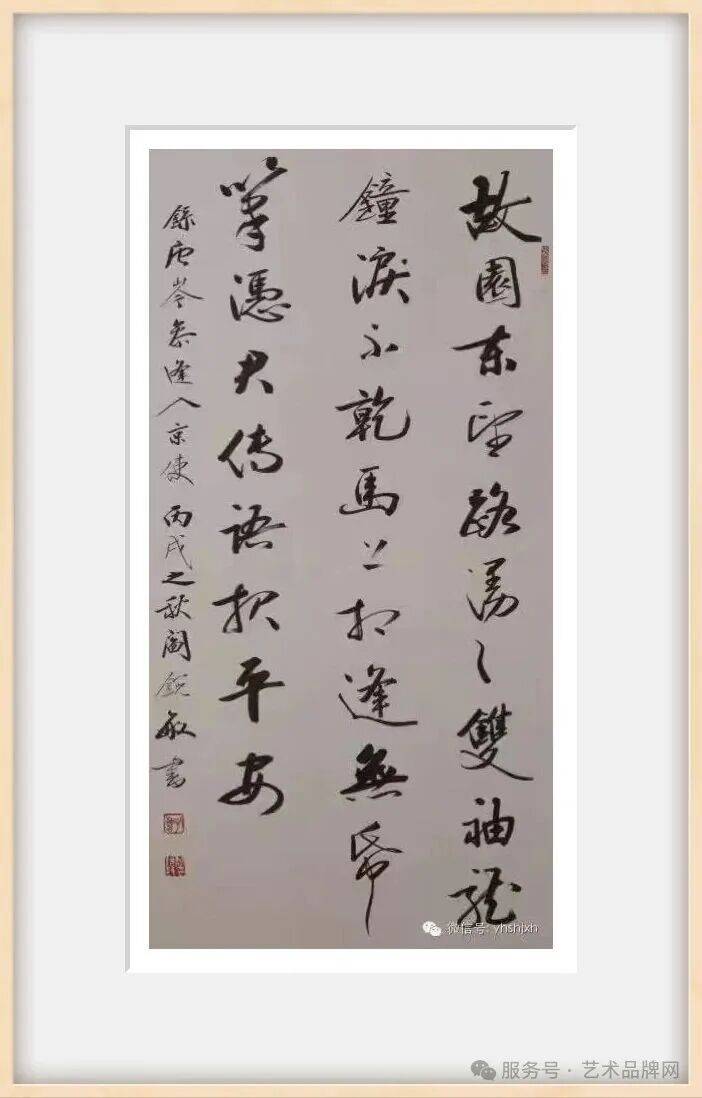 故園東望路漫〻雙袖龍
鐘淚不乾馬上相逢無帋
筆憑君傳語報平安
錄唐岑參逢入京使 丙戌之秋閻銳敏書
微信号: yhshjxh
服务号 · 艺术品牌网